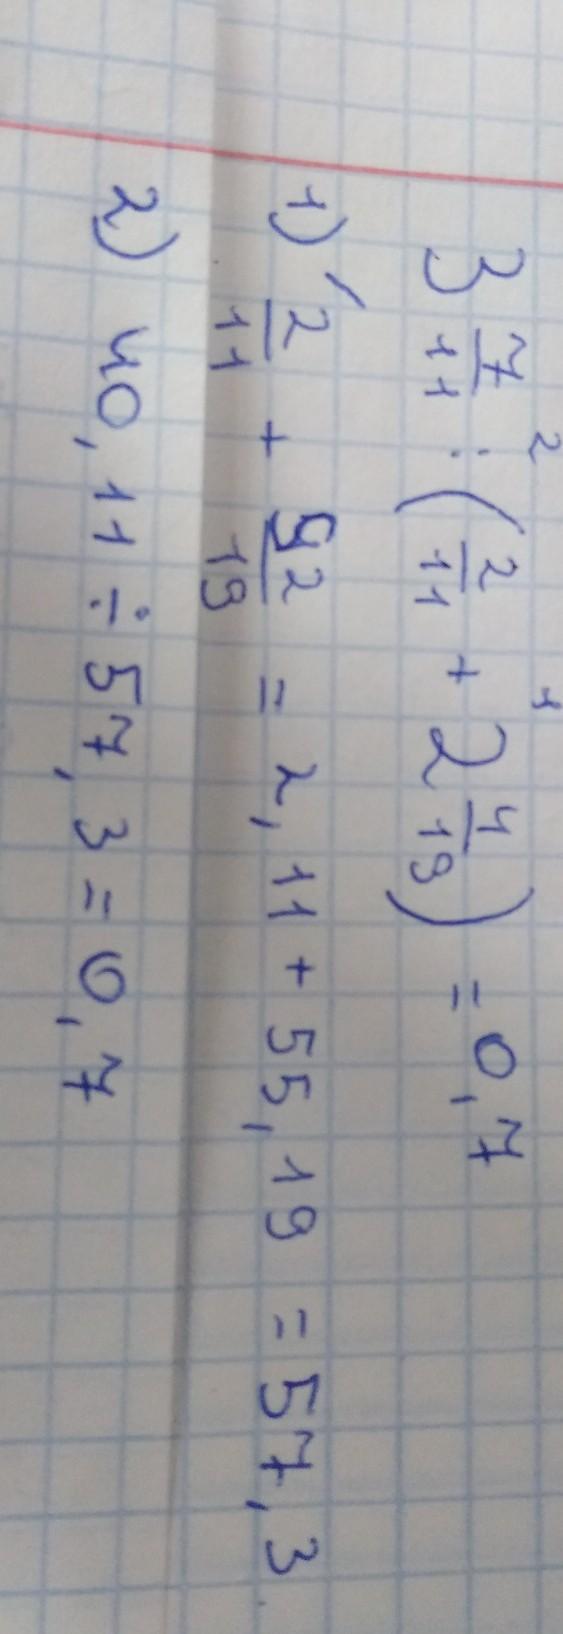 3 7/11 : (2/11 + 2 4/19) = 0,7
1) 2/11 + 42/19 = 2,11 + 55,19 = 57,3
2) 40,11 ÷ 57,3 = 0,7